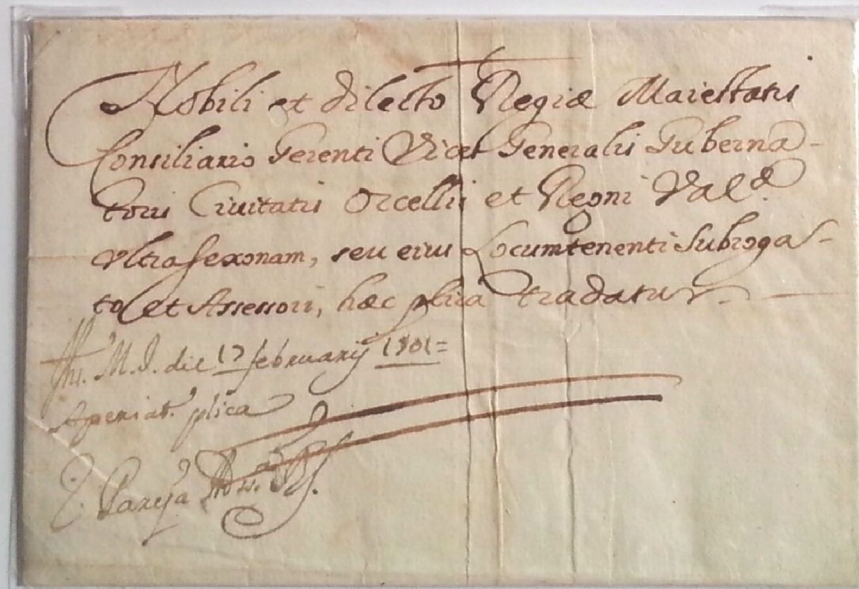 Nobili et dilecto Regiæ Maiestatis
Consiliario Gerenti Vices Generalis Guberna-
toris Civitatis Orcellis et Regni Valᵉ
Ultrasexonam, seu eius Locumtenenti Subroga-
to, et Assessori, hæc plica tradatur.
die 17 february
Aperiatʳ plica
Pareja